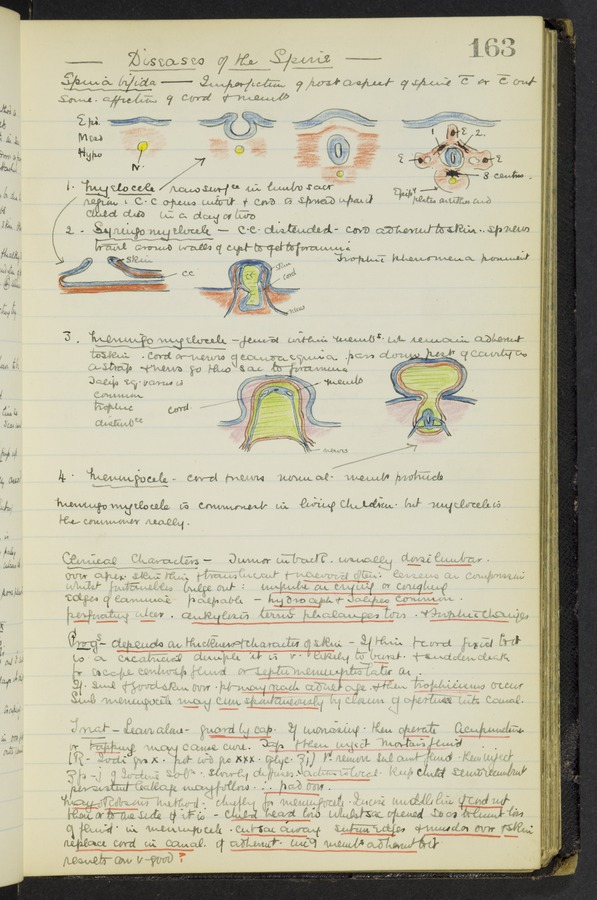 163
Diseases of the Spine
Spina bifida — Imperfection of post aspect of spine c̄ or c̄out
some affection of cord & membs
Epi.
Meso
Hypo
N.
1.
2.
E
E
E
3 centres
1. Myelocele raw surface in lumbo sacr
region & C.C opens into it & cord is spread upon it
child dies in a day or two
2. Syringo myelocele - C.C distended - cord adherent to skin ∴ sp nerves
travel around walls of cyst to get to foramina
Trophic phenomena prominent
skin
cc
skin
cord
nerve
3. Meningo myelocele - fluid within membs wh remain adherent
to skin. cord or nerves of cauda equina pass down post of cavity as
a strap & nerves go thro sac to foramina
Talip eq. varus is
common
trophic
disturbces
membs
cord
nerves
4. Meningocele - cord & nerves normal. membs protrude
Meningo myelocele is commonest in living children but myelocele is
the commoner really.
Clinical Characters - Tumor in back. usually dorsi lumbar.
over apex skin thin & translucent & naevoid often: lessens on compression
whilst fontanelles bulge out: impulse on crying or coughing
edges of laminae palpable - hydroceph & talipes common.
perforating ulcer. ankylosis term phalanges toes. & trophic changes
Progs - depends on thickness & character of skin - If thin & cord fixed to it
is a cicatricial dimple it is v. likely to burst. & sudden death
fr escape cerebrosp fluid or septic meningitis later on.
If small & good skin over. pt may reach adult age & then trophic ulcers occur
Simp meningocele may cure spontaneously by closure of aperture into canal.
Treat - Leave alone - guard by cap. If increasing. then operate Acupuncture
or tapping may cause cure. Tap & then inject Mortons fluid
(R- Iodi grs x. pot iod grs xxx. Glyc ℥j) 1st remove sml amt fluid. then inject
ʒss-j of Iodine solⁿ. slowly diffuses & action is local. Keep child semi recumbent
persistent leakage may follow. ∴ pad on.
Mayo Robsons method: chiefly for meningocele. Incise middle line if cord not
there or to one side if it is - child's head low whilst sac opened so as to limit loss
of fluid. in meningocele. cut sac away suture edges & muscles over & skin
replace cord in canal. if adherent. in c̄ membs adherent to it
results are v. good?